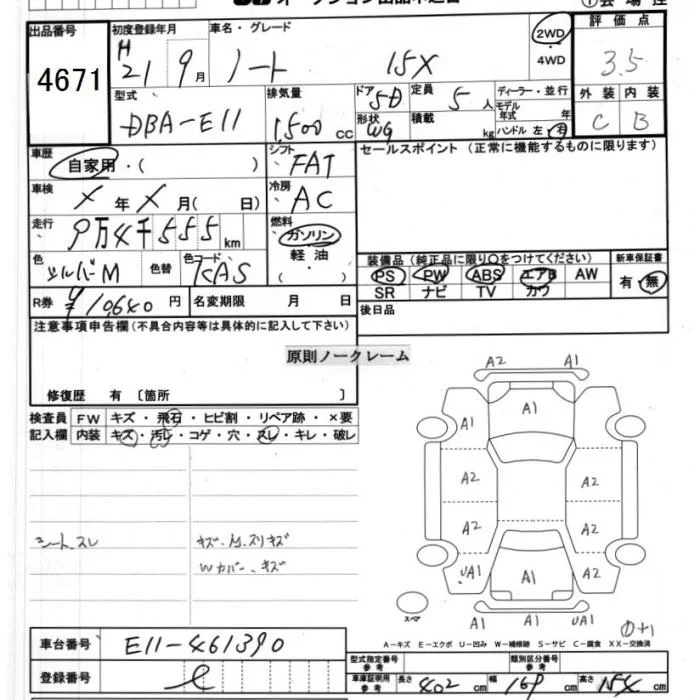 オークション出品申込書
出品番号 初度登録年月 車名・グレード 評価点
4671 H21 9月 ノート 15X 2WD・4WD 3.5
型式 排気量 ドア 5D 定員 5人 ディーラー・並行 外装 内装
DBA-E11 1500cc 形状 WG 積載 kg モデル年式 年 ハンドル 左・右 C B
車歴 自家用・( ) シフト FAT セールスポイント(正常に機能するものに限ります)
車検 X年X月( 日) 冷房 AC
走行 9万4千555km 燃料 ガソリン 軽油 ( )
色 シルバーM 色替 色コード KAS
装備品(純正品に限り〇をつけてください) 新車保証書
PS PW ABS エアB AW 有・無
SR ナビ TV カワ
R券 ¥10,640円 名変期限 月 日 後日品
注意事項申告欄(不具合内容等は具体的に記入して下さい)
原則ノークレーム
修復歴 有 〔箇所 〕
検査員 FW キズ・飛石・ヒビ割・リペア跡・×要
記入欄 内装 キズ・汚レ・コゲ・穴・スレ・キレ・破レ
シートスレ
キズ、スリキズ
Wカバー、キズ
A2 A1
A1 A1
A2 A2
A2 A2
UA1 A1 A2
スペア
A1 A1 UA1
A-キズ E-エクボ U-凹み W-補修跡 S-サビ C-腐食 XX-交換済
車台番号 E11-461390
登録番号
型式指定番号 参考 類別区分番号 参考
車庫証明用 参考 長さ 402cm 幅 169cm 高さ 154cm